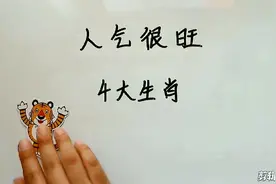 人气很旺
4大生肖